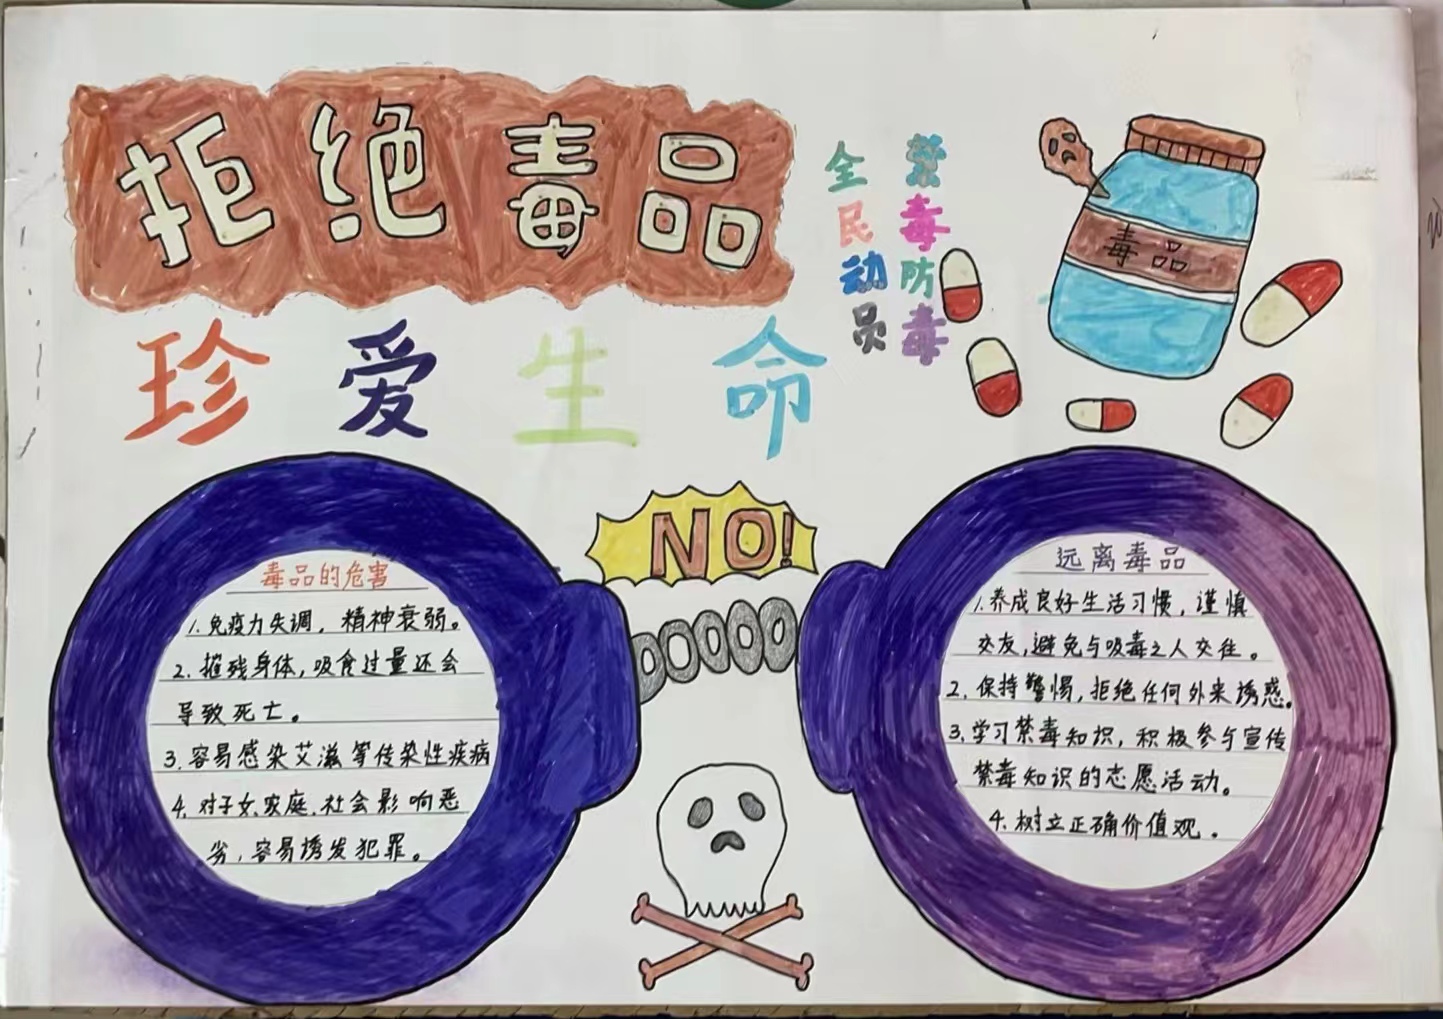 拒绝毒品
珍爱生命
全民动员
禁毒防毒
毒品
NO!
毒品的危害
1.免疫力失调，精神衰弱。
2.摧残身体，吸食过量还会
导致死亡。
3.容易感染艾滋等传染性疾病
4.对子女、家庭、社会影响恶
劣，容易诱发犯罪。
远离毒品
1.养成良好生活习惯，谨慎
交友，避免与吸毒之人交往。
2.保持警惕，拒绝任何外来诱惑。
3.学习禁毒知识，积极参与宣传
禁毒知识的志愿活动。
4.树立正确价值观。